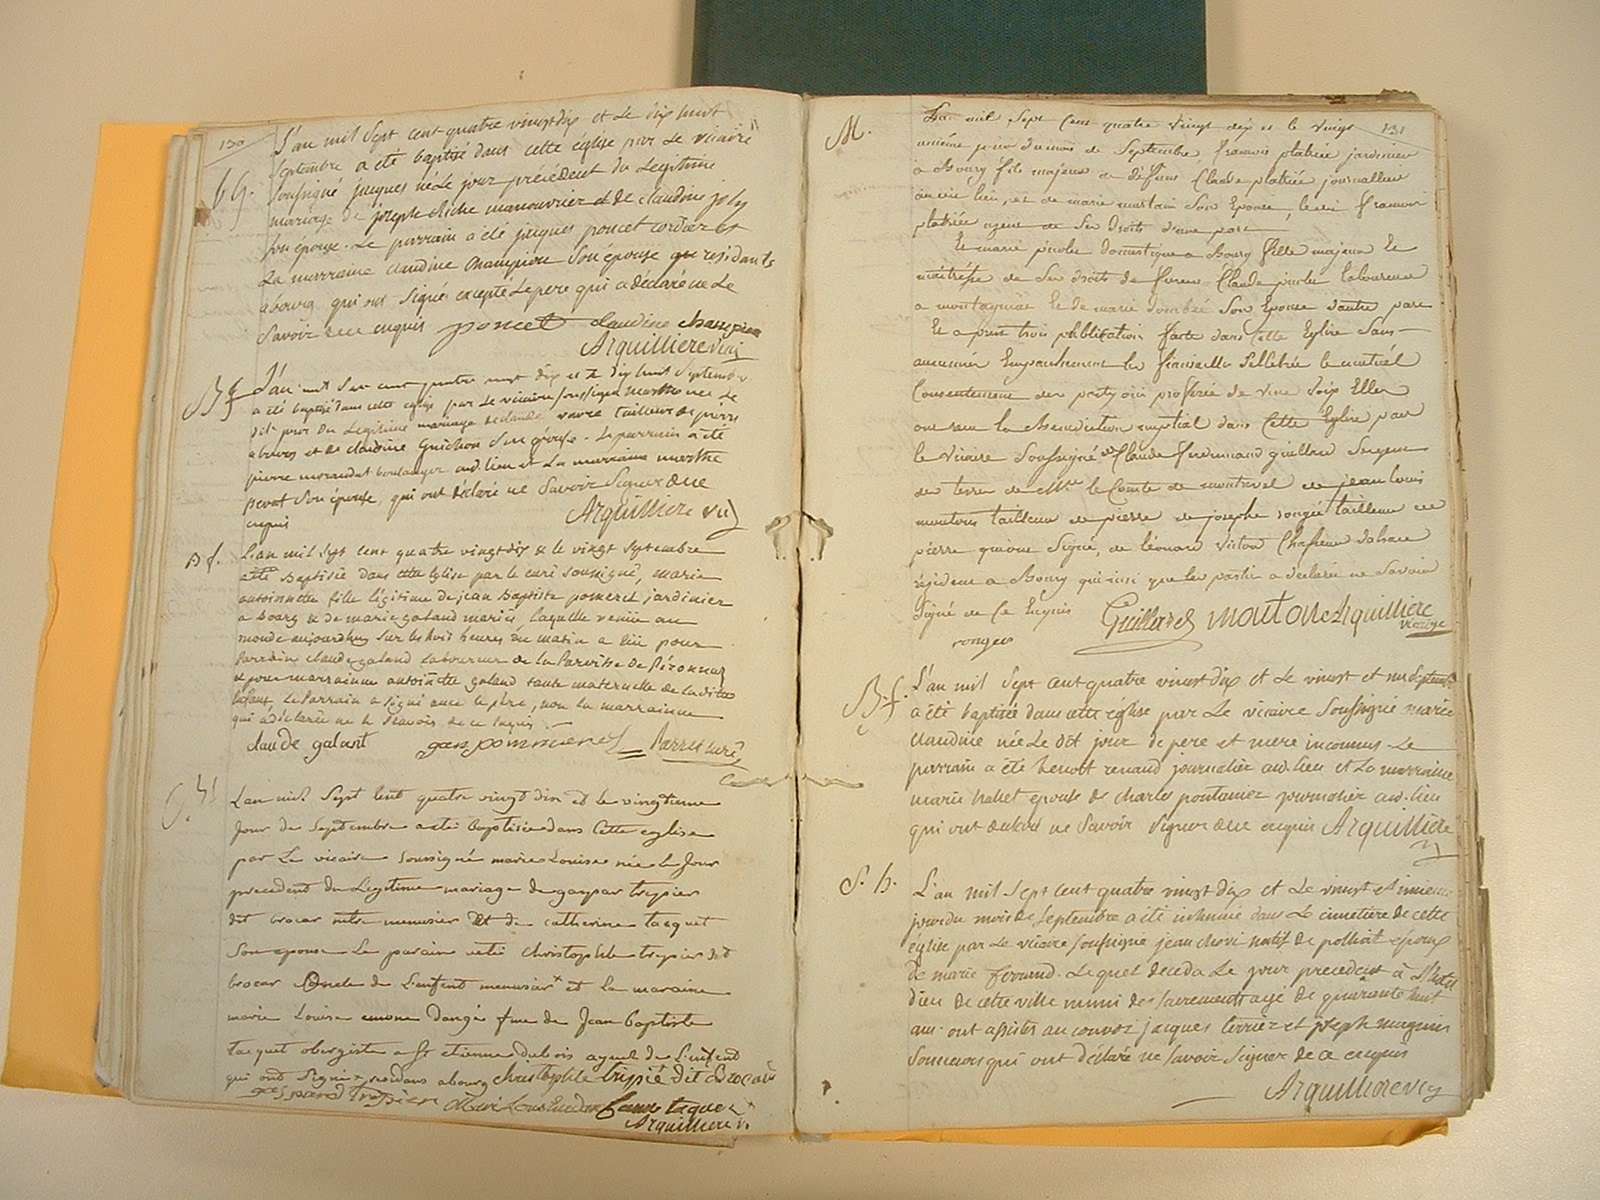 130
L'an mil sept cent quatre vingt dix et le dix huit
septembre a été baptisé dans cette église par le vicaire
soussigné jacques né le jour précédent du legitime
mariage de joseph cliche manouvrier et de claudine joly
son épouse. Le parrain a été jacques poncet cordier et
La marraine claudine champion son épouse residants
a bourg qui ont signés excepté le pere qui a déclaré ne le
savoir de ce enquis poncet claudine champion
Arquilliere vic
Bf L'an mil sept cent quatre vingt dix et le dix huit septembre
a été baptisé dans cette église par le vicaire soussigné marthe née le
dit jour du legitime mariage de claude tailleur de pierre
a bourg et de claudine Guichon son épouse. le parrain a été
pierre morandat boulanger aud. lieu et la marraine marthe
pevot son épouse, qui ont déclaré ne savoir signer de ce
enquis Arquilliere vic
Bf. L'an mil sept cent quatre vingt dix & le vingt septembre
a été Baptisée dans cette Eglise par le curé soussigné, marie
antoinette fille légitime de jean Baptiste pomerel jardinier
a bourg & de marie galand mariés laquelle venue au
monde aujourdhuy sur les huit heures du matin a eû pour
Parrain claude galand Laboureur de la Parroisse de Péronnaz
& pour marrainne antoinette galand tante maternelle de la ditte
Enfant, Le Parrain a signé avec le père, non la marrainne
qui a déclarée ne le sçavoir de ce enquis.
claude galant Parret curé
L'an mil sept cent quatre vingt dix et le vingtieme
Jour de septembre a eté baptisée dans cette eglise
par Le vicaire soussigné marie Louise née le Jour
precedent du Legitime mariage de gaspar tripier
dit brocar mtre menusier et de catherine taquet
son epouse Le parain a eté christophle tripier dit
brocar oncle de L'enfent menusier et la maraine
marie Louise emone dangé fme de Jean baptiste
taquet obergiste a St etienne dubois ayeul de L'enfent
qui ont signé residans a bourg christophle tripié dit Brocar
gaspard Tripier
Arquilliere v.
131
M. L'an mil sept cent quatre vingt dix et le vingt
unième jour du mois de septembre, francois platiée jardinier
a bourg fils majeur de défunt Claude platiée journallier
au dit lieu, et de marie mustain son Epouse, le dit francois
platiée usant de ses droits d'une part
Et marie picolu domestique a bourg fille majeure et
maitresse de ses droits de Claude picolu laboureur
a montagniat et de marie son Epouse d'autre part
Et apres trois publication faite dans cette Eglise sans
aucun Empechement les fiançailles célébrée le mutuel
Consentement des partys oui proférée de vive voix Elles
ont reçu la Benediction nuptial dans cette Eglise par
le vicaire soussigné Claude ferdinand guillard
des terres de Mr. le Comte de montrevel de jean louis
mouton tailleur de pierre de josephe rongée tailleur de
pierre qui ont signé, de léonard victor
résident a bourg qui ainsi que les parties a déclarée ne savoir
Signé de ce Enquis Guillard mouton Arquilliere
ronges vicaire
Bf. L'an mil sept cent quatre vingt dix et le vingt et un septembre
a été baptisée dans cette église par le vicaire soussigné marie
claudine née le dit jour de pere et mere inconnus. Le
parrain a été benoit renaud journalier aud. lieu et la marraine
marie épouse de charles journalier aud. lieu
qui ont declaré ne savoir signer de ce enquis Arquilliere
v
S. h. L'an mil sept cent quatre vingt dix et le vingt et unieme
jour du mois de septembre a été inhumé dans le cimetière de cette
église par le vicaire soussigné jean natif de polliat époux
de marie ferrand. Lequel deceda le jour precedent à l'hotel
dieu de cette ville muni des sacrements agé de quarante huit
ans. ont assistés au convoi jacques terrier et joseph magnin
sonneurs qui ont déclaré ne savoir signer de ce enquis
Arquilliere vic